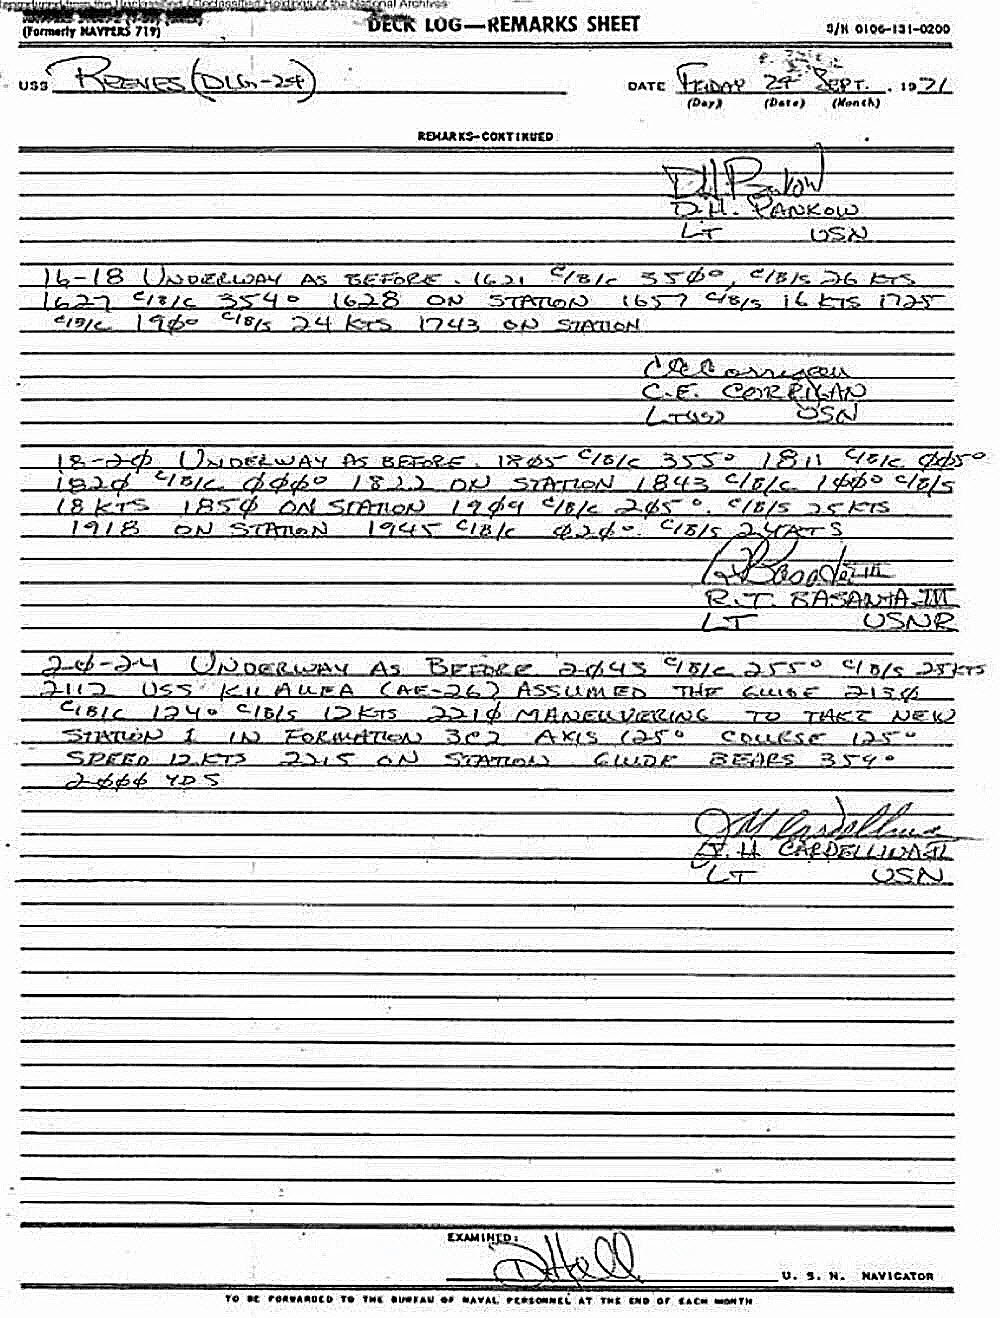 Reproduced from the Unclassified / Declassified Holdings of the National Archives
DECK LOG—REMARKS SHEET
(Formerly NAVPERS 719)
S/N 0106-131-0200
USS REEVES (DLG-24)
DATE FRIDAY 24 SEPT. , 19 71
(Day) (Date) (Month)
REMARKS—CONTINUED
D.H. Pankow
D.H. PANKOW
LT USN
16-18 UNDERWAY AS BEFORE. 1621 C/B/C 35Ø°, C/B/S 26 KTS
1627 C/B/C 354° 1628 ON STATION 1657 C/B/S 16 KTS 1725
C/B/C 19Ø° C/B/S 24 KTS 1743 ON STATION
C E Corrigan
C.E. CORRIGAN
LTJG USN
18-2Ø UNDERWAY AS BEFORE. 18Ø5 C/B/C 355° 1811 C/B/C ØØ5°
182Ø C/B/C ØØØ° 1822 ON STATION 1843 C/B/C 1ØØ° C/B/S
18 KTS 185Ø ON STATION 19Ø9 C/B/C 265°. C/B/S 25 KTS
1918 ON STATION 1945 C/B/C Ø2Ø°. C/B/S 24 KTS
R.T. BASANTA III
LT USNR
2Ø-24 UNDERWAY AS BEFORE 2Ø45 C/B/C 255° C/B/S 25 KTS
2112 USS KILAUEA (AE-26) ASSUMED THE GUIDE 213Ø
C/B/C 124° C/B/S 12 KTS 221Ø MANEUVERING TO TAKE NEW
STATION 1 IN FORMATION 3C2 AXIS 125° COURSE 125°
SPEED 12 KTS 2215 ON STATION GUIDE BEARS 359°
2ØØØ YDS
J M Cardellina
CARDELLINA II
LT USN
EXAMINED:
D Hall
U. S. N. NAVIGATOR
TO BE FORWARDED TO THE BUREAU OF NAVAL PERSONNEL AT THE END OF EACH MONTH